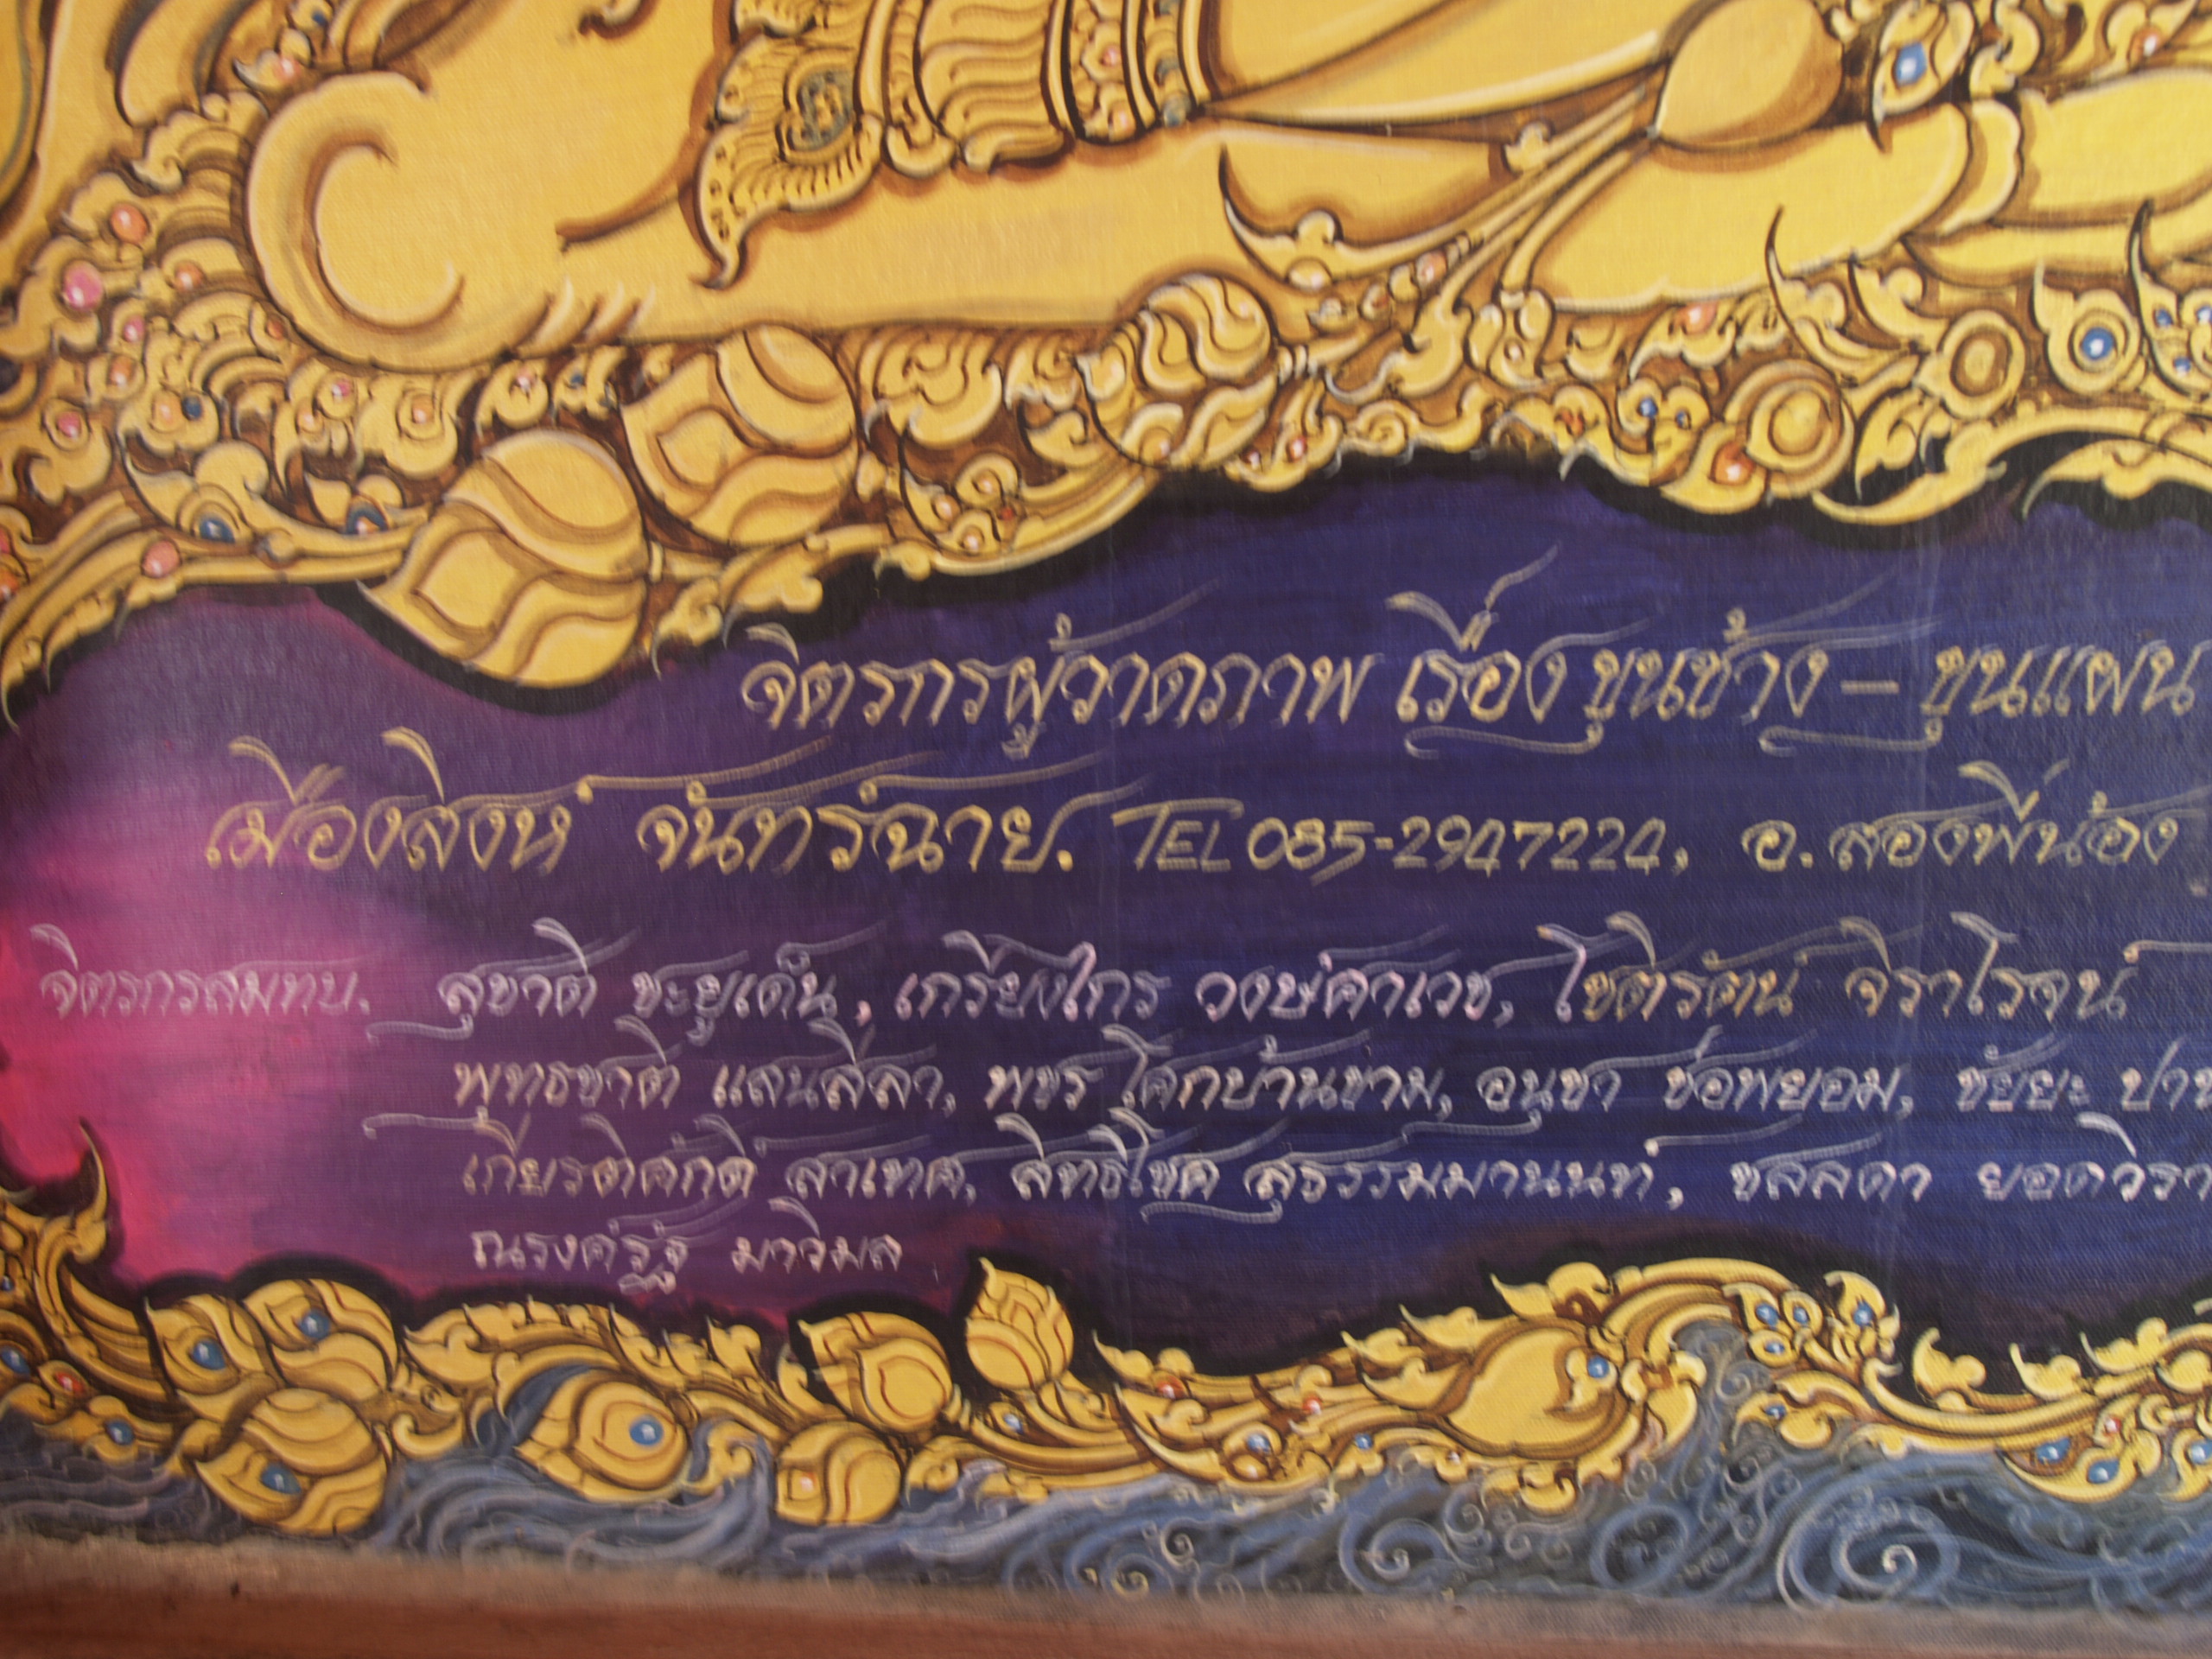 จิตรกรผู้วาดภาพ เรื่อง ขุนช้าง - ขุนแผน
เมืองสิงห์ จันทร์ฉาย. TEL 085-2947224, อ.สองพี่น้อง
จิตรกรสมทบ. สุชาติ ชะยูเด็น, เกรียงไกร วงษ์คำเวช, โชติรัตน์ จิราโรจน์
พุทธชาติ แสนสีลา, พชร โคกบ้านขาม, อนุชา ช่อพยอม, ชัยยะ
เกียรติศักดิ์ สาเทศ, สิทธิโชค สุธรรมมานนท์, ชลลดา
ณรงค์รัฐ มาวิมล